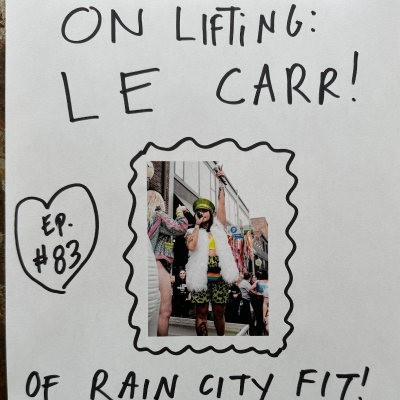 ON LIFTING:
LE CARR!
EP.
#83
OF RAIN CITY FIT!